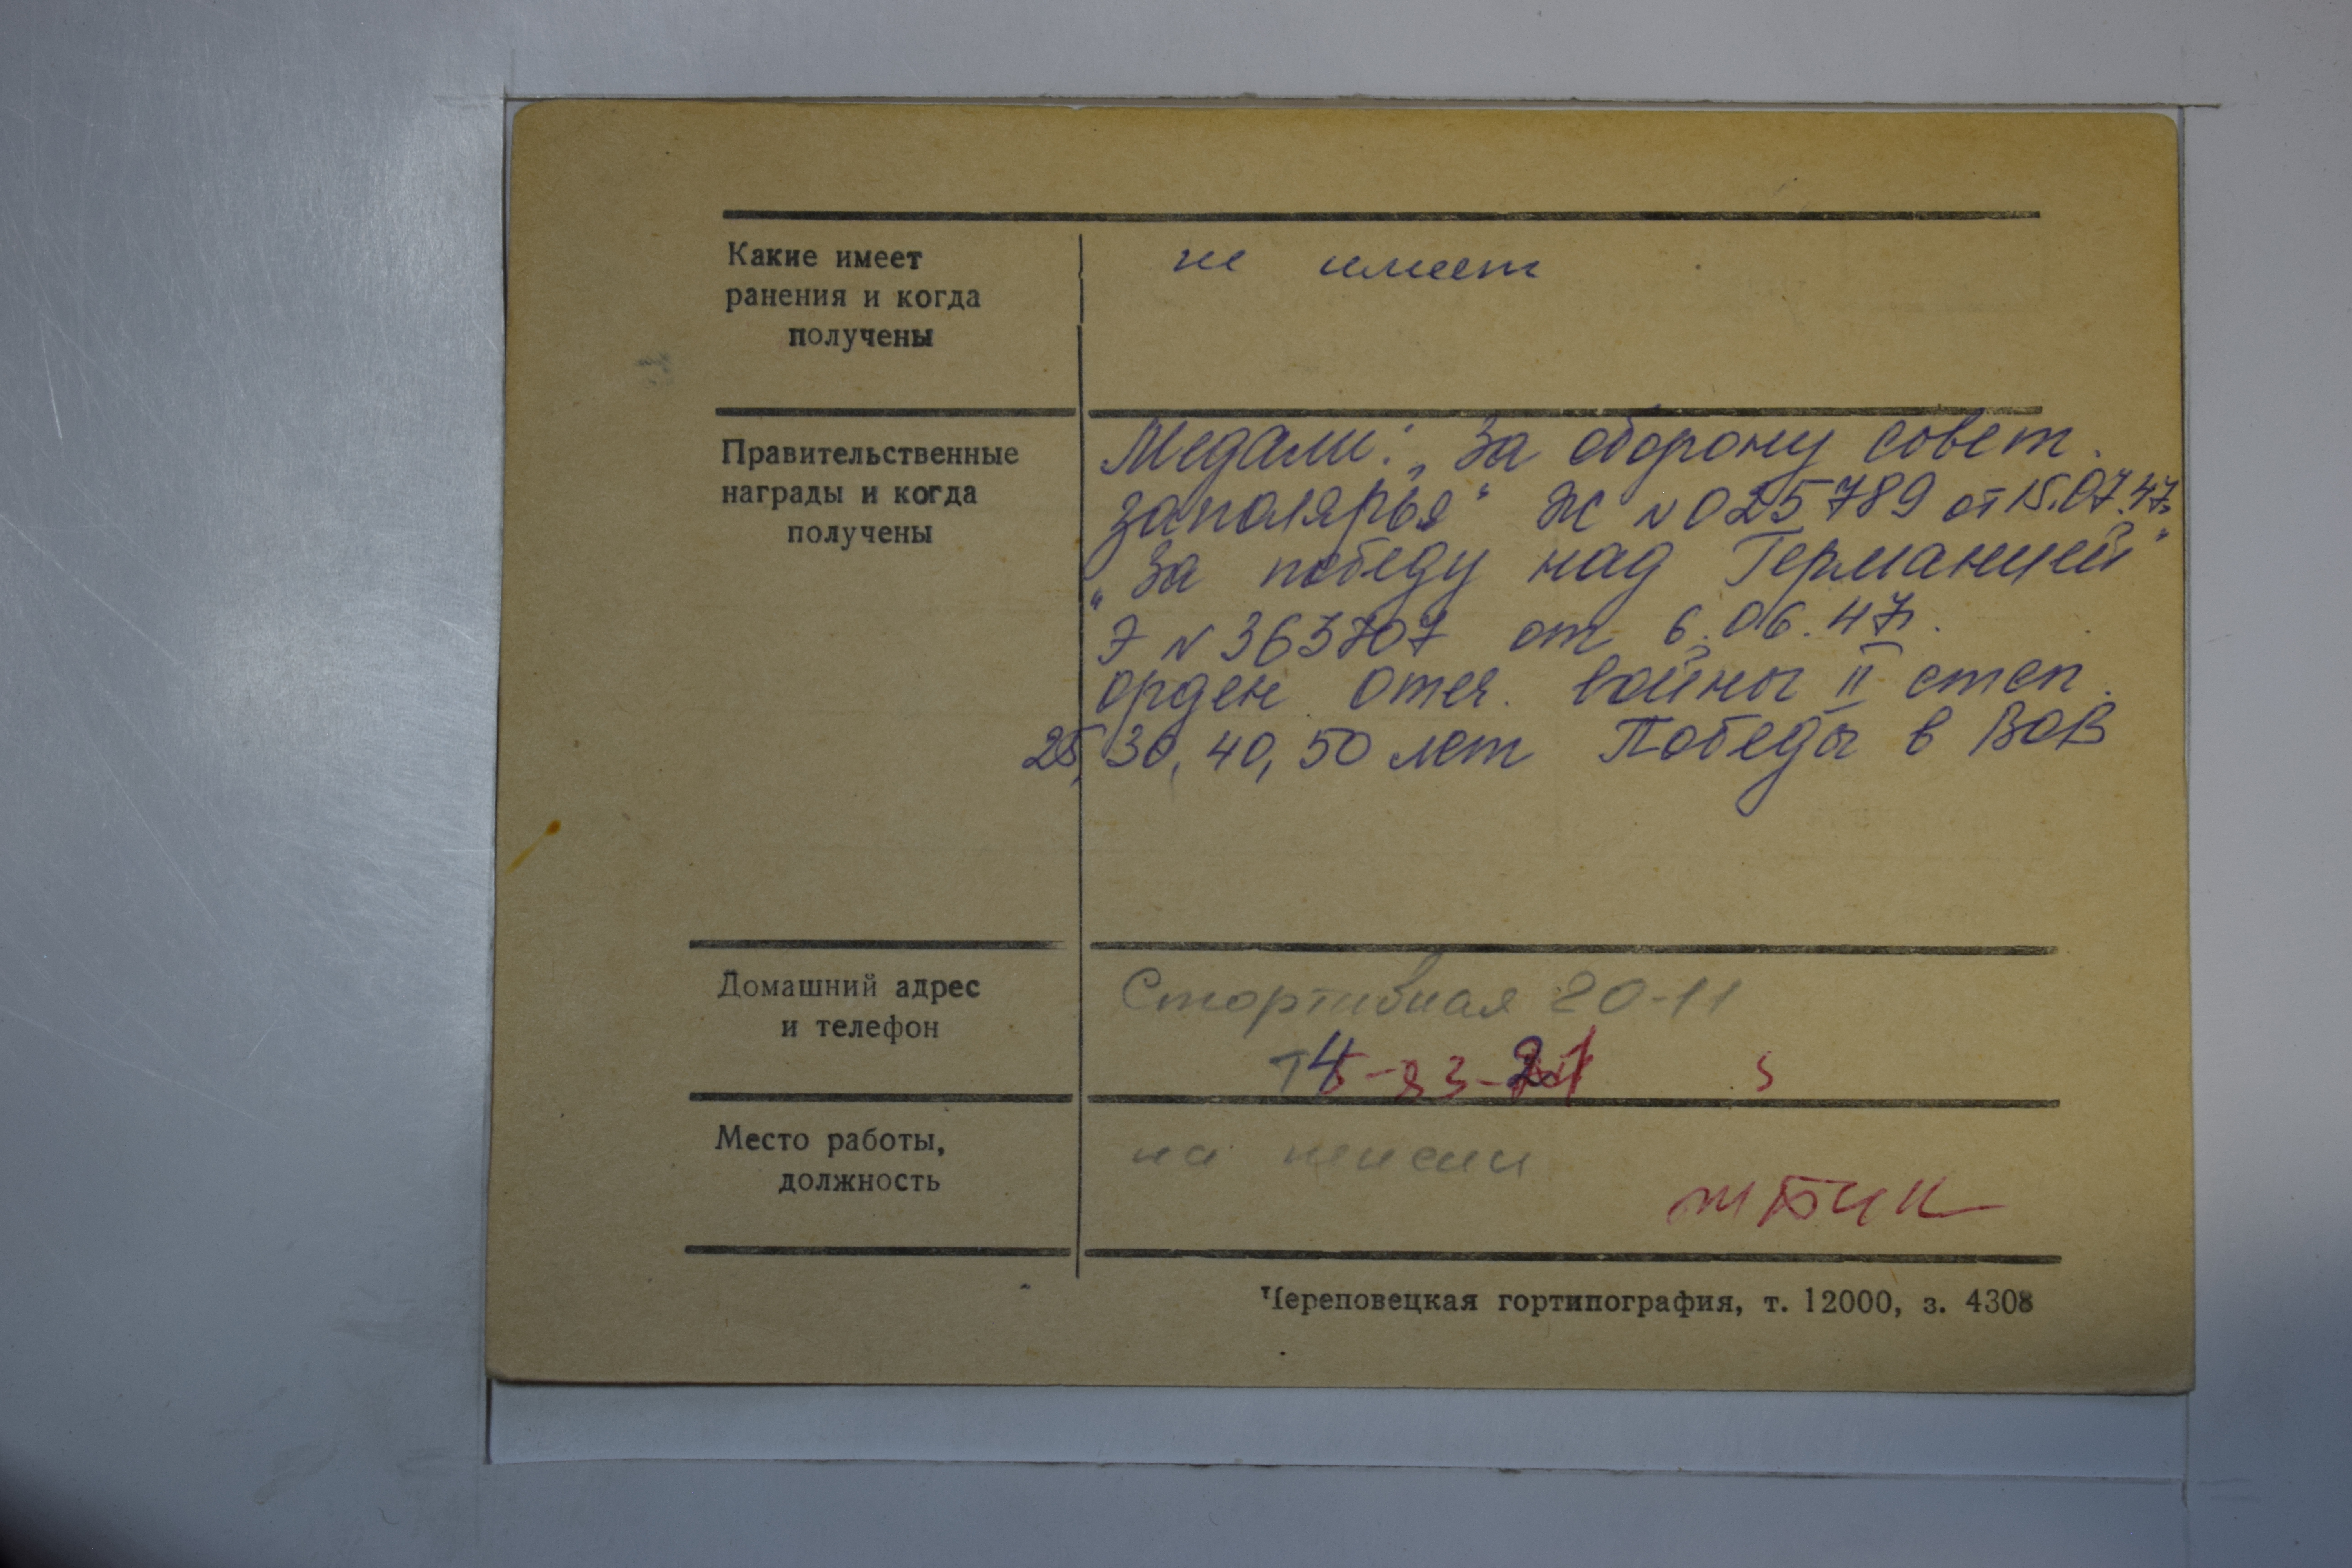 Какие имеет
ранения и когда
получены
не имеет
Правительственные
награды и когда
получены
Медали: „За оборону совет.
заполярья“ Ж №025789 от 15.07.47г.
„За победу над Германией“
Э №363707 от 6.06.47г.
орден Отеч. войны II степ.
25, 30, 40, 50 лет Победы в ВОВ
Домашний адрес
и телефон
Спортивная 20-11
Место работы,
должность
на пенсии
Череповецкая гортипография, т. 12000, з. 4308